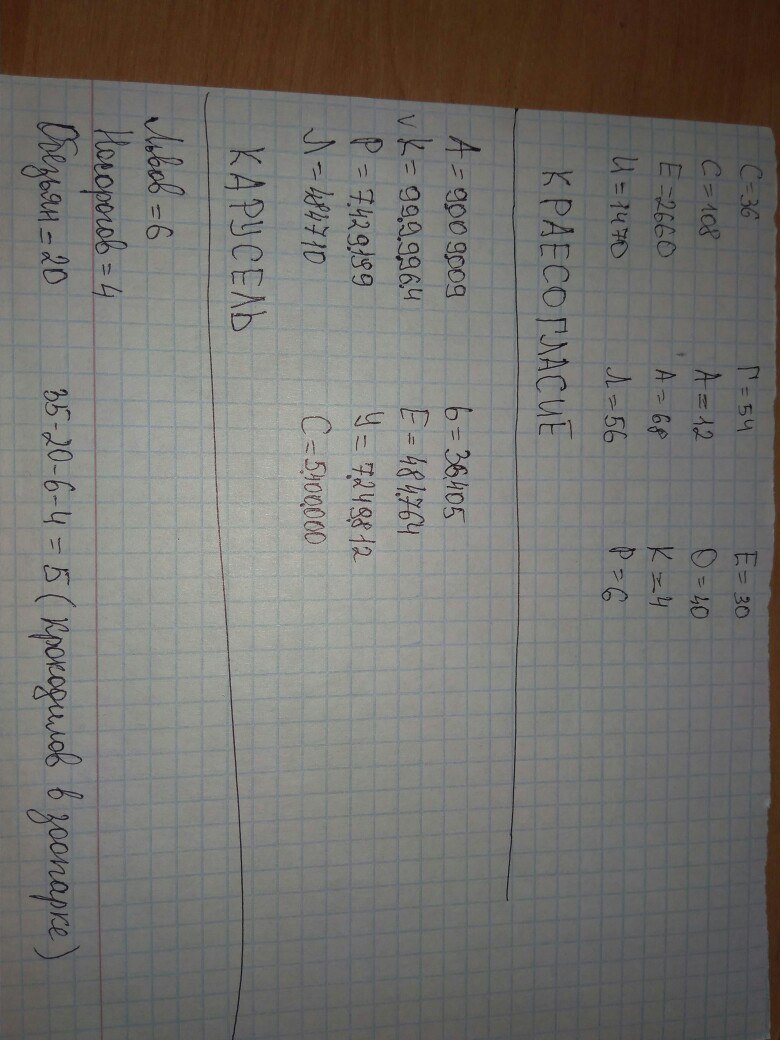 С=36 Г=54 Е=30
С=108 А=12 О=40
Е=2660 А=68 К=4
И=1470 Л=56 Р=6
КРАЕСОГЛАСИЕ
А=9.009.009 Ь=36.405
v К=99.999.964 Е=484.764
Р=7.429.199 У=7.249.812
Л=484710 С=5.400.000
КАРУСЕЛЬ
Львов=6
Носорогов=4
Обезьян=20 35-20-6-4=5 (крокодилов в зоопарке)